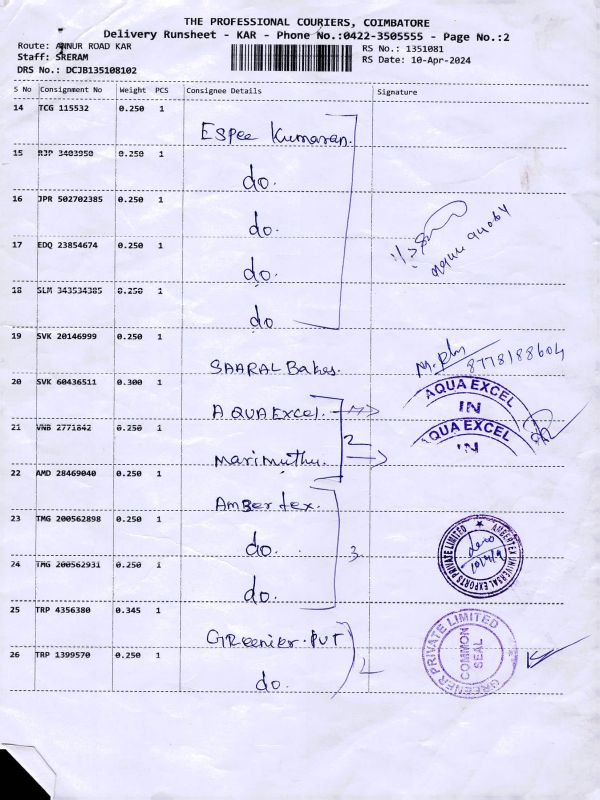 THE PROFESSIONAL COURIERS, COIMBATORE
Delivery Runsheet - KAR - Phone No.:0422-3505555 - Page No.:2
Route: ANNUR ROAD KAR
Staff: SRERAM
DRS No.: DCJB135108102
RS No.: 1351081
RS Date: 10-Apr-2024
S No Consignment No Weight PCS Consignee Details Signature
14 TCG 115532 0.250 1 Espee Kumaran.
15 RJP 3403950 0.250 1 do.
16 JPR 502702385 0.250 1 do.
17 EDQ 23854674 0.250 1 do.
18 SLM 343534385 0.250 1 do
19 SVK 20146999 0.250 1 SAARAL Bakes. 8778188604
20 SVK 60436511 0.300 1 AQUA EXCEL. AQUA EXCEL IN
21 VNB 2771842 0.250 1 Marimuthu. 2 AQUA EXCEL IN
22 AMD 28469040 0.250 1 Amber tex.
23 TMG 200562898 0.250 1 do. 3. AMBERTEX UNIVERSAL EXPORTS PRIVATE LIMITED
24 TMG 200562931 0.250 1 do.
25 TRP 4356380 0.345 1 Greenier. PVT GREENER PRIVATE LIMITED COMMON SEAL
26 TRP 1399570 0.250 1 do.